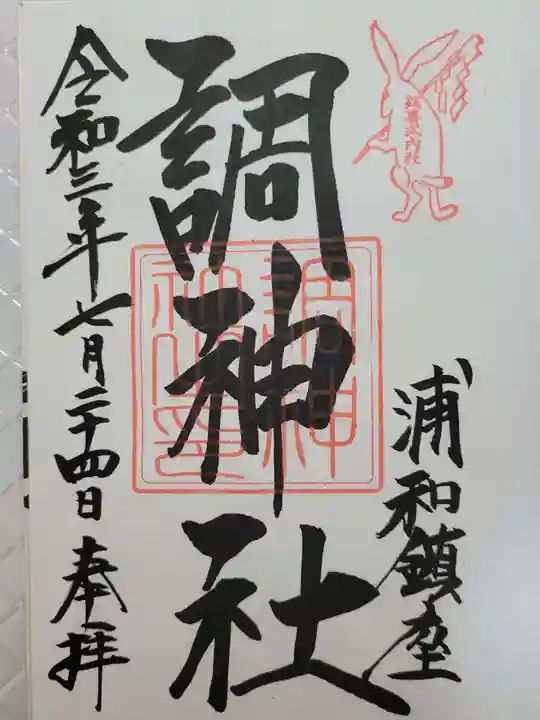 延喜式内社
浦和鎮座
調神社
令和三年七月二十四日 奉拝